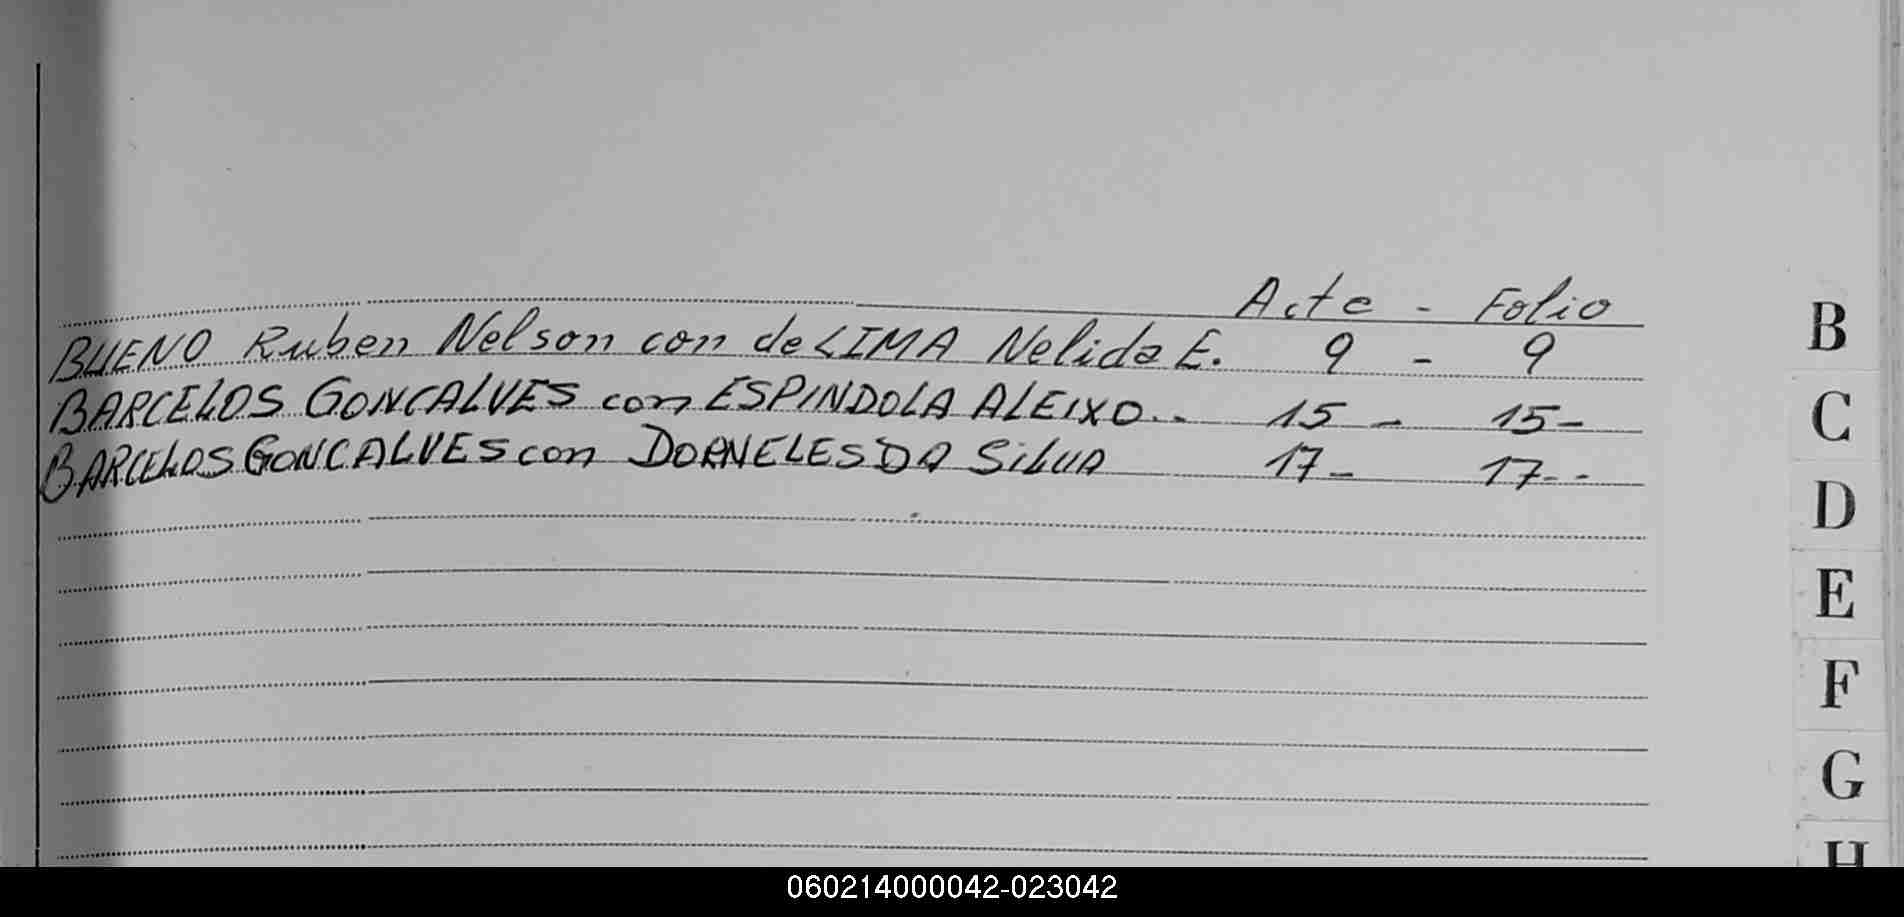 Acta - Folio
BUENO Ruben Nelson con de LIMA Nelida E. 9 - 9
BARCELOS GONCALVES con ESPINDOLA ALEIXO.- 15 - 15-
BARCELOS GONCALVES con DORNELES DA SILVA 17- 17--
B
C
D
E
F
G
H
060214000042-023042